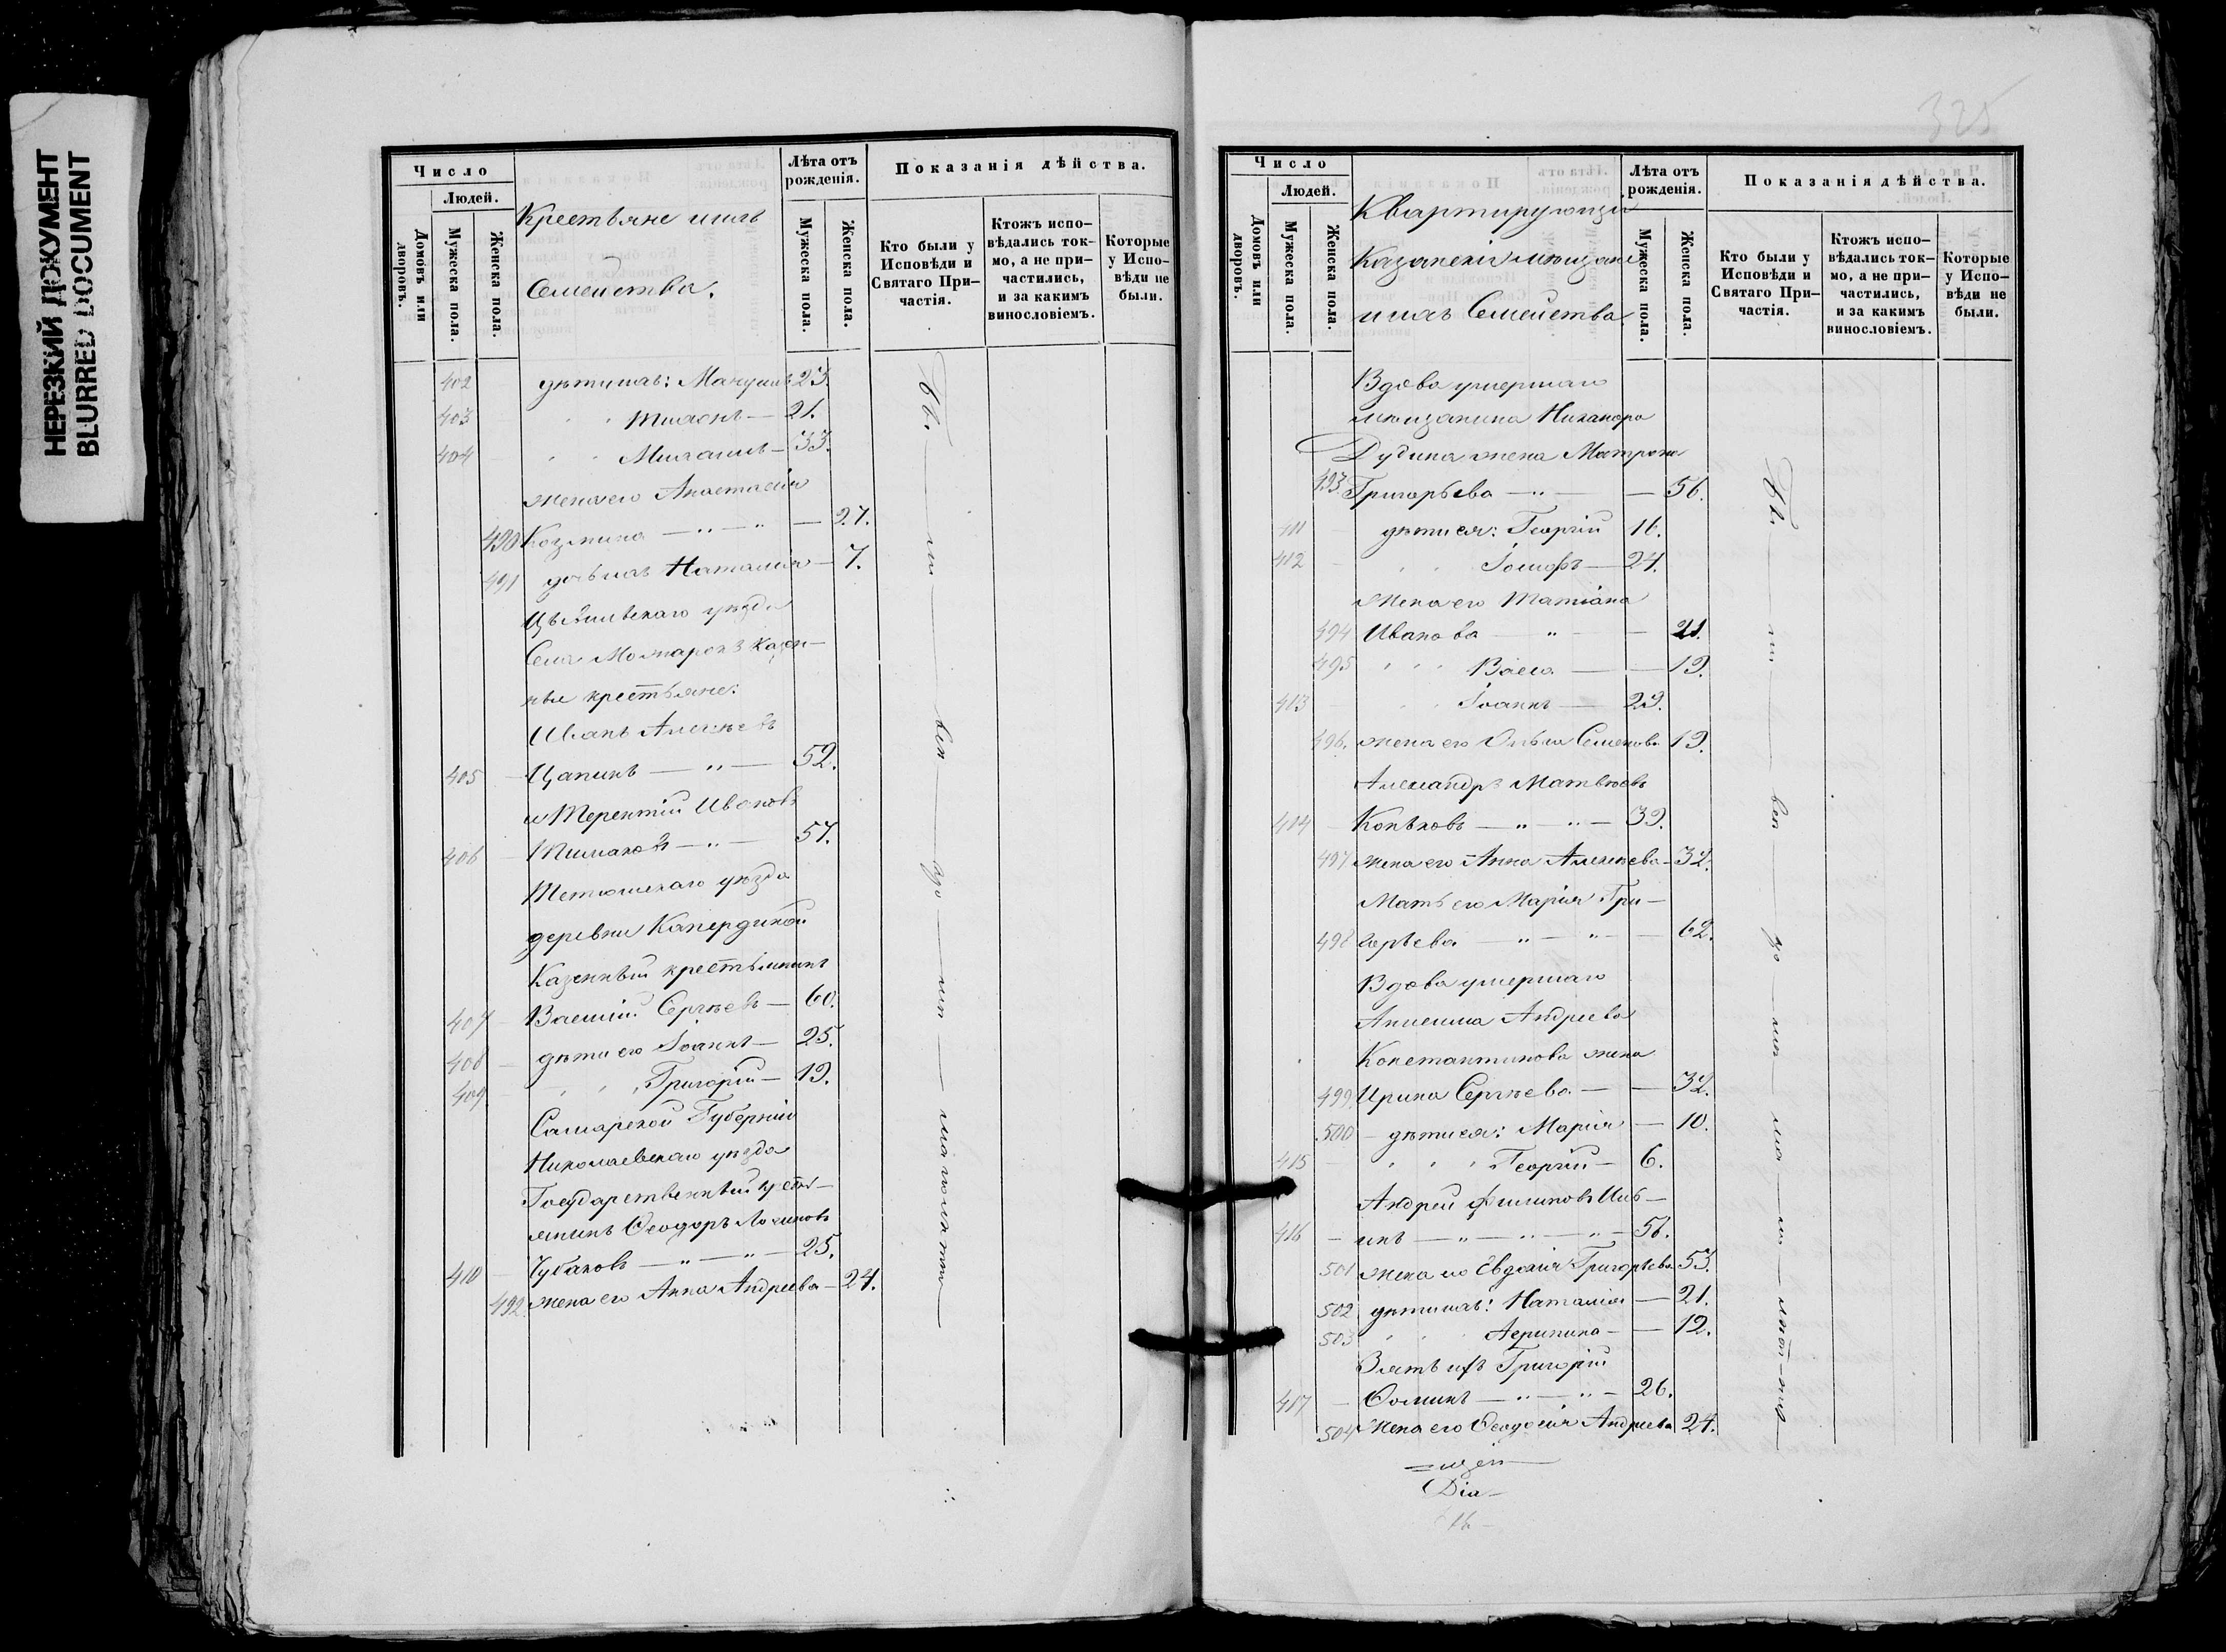 НЕРЕЗКИЙ ДОКУМЕНТ
BLURRED DOCUMENT
Число
Людей.
Домовъ или дворовъ.
Мужеска пола.
Женска пола.
Крестьяне ихъ
Семейства.
Лѣта отъ рожденія.
Мужеска пола.
Женска пола.
Показанія дѣйства.
Кто были у Исповѣди и Святаго Причастія.
Ктожъ исповѣдались токмо, а не причастились, и за какимъ винословіемъ.
Которые у Исповѣди не были.
402 дѣти ихъ: 23.
403 " " 21.
404 " " Михаилъ — 33.
жена его Анастасія
490 Козмина — " — " — 27.
491 дочь ихъ Наталія — 7.
Цывильскаго уѣзда
Села казен-
ные крестьяне:
Иванъ Алексѣевъ
405 Цапинъ — " — 52.
и Терентій Ивановъ
406 — " — 57.
Тетюшскаго уѣзда
деревни
Казенный крестьянинъ
407 Василій Сергѣевъ — 60.
408 дѣти его Іоаннъ — 25.
409 " " Григорій — 19.
Самарской Губерніи
Николаевскаго уѣзда
Государственный кресть-
янинъ Ѳеодоръ
410 Чубаковъ — " — 25.
492 жена его Анна Андреева — 24.
325
Число
Людей.
Домовъ или дворовъ.
Мужеска пола.
Женска пола.
Квартирующіи
Казанскія мѣщане
и ихъ Семейства
Лѣта отъ рожденія.
Мужеска пола.
Женска пола.
Показанія дѣйства.
Кто были у Исповѣди и Святаго Причастія.
Ктожъ исповѣдались токмо, а не причастились, и за какимъ винословіемъ.
Которые у Исповѣди не были.
Вдова умершаго
мѣщанина Никанора
Дудина жена Матрона
493 Григорьева — " — — 56.
411 дѣти ея: Георгій 16.
412 " " Іосифъ — 24.
Жена его Татіана
494 Иванова — " — 21.
495 " " " Васса — — 19.
413 " " Іоаннъ — 29.
496. жена его Ольга Семенова 19.
Александръ Матвѣевъ
414 Коньковъ — " — " — 39.
497 жена его Анна Алексѣева — 32.
Мать его Марія Гри-
498 горьева — " — " — 62.
Вдова умершаго
Анисима Андреева
Константинова жена
499. Ирина Сергѣева — — 32.
500 — дѣти ея: Марія — 10.
415 " " " Георгій — 6.
Андрей Филиповъ Иль-
416 — инъ — " — " — " — 56.
501 жена его Евдокія Григорьева 53.
502 дѣти ихъ: Наталія — 21.
503 " " Агрипина — — 12.
Зять ихъ Григорій
417 — Ѳоминъ — " — " — 26.
504 Жена его Ѳеодосія Андреева 24.
Dia-